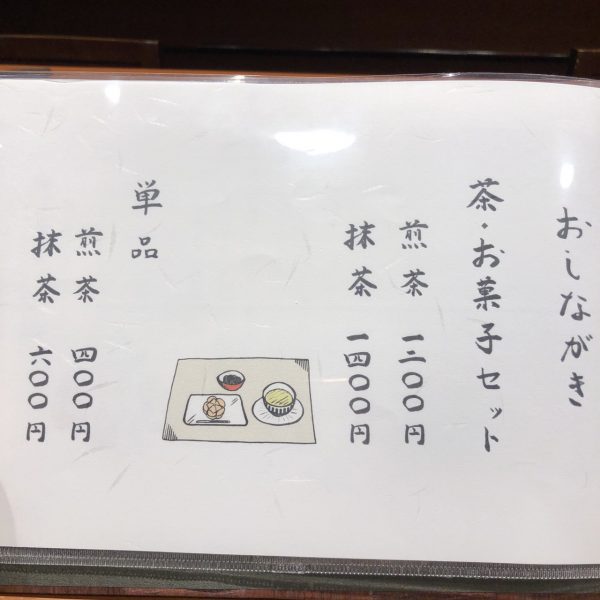 おしながき
茶・お菓子セット
煎茶 一二〇〇円
抹茶 一四〇〇円
単品
煎茶 四〇〇円
抹茶 六〇〇円